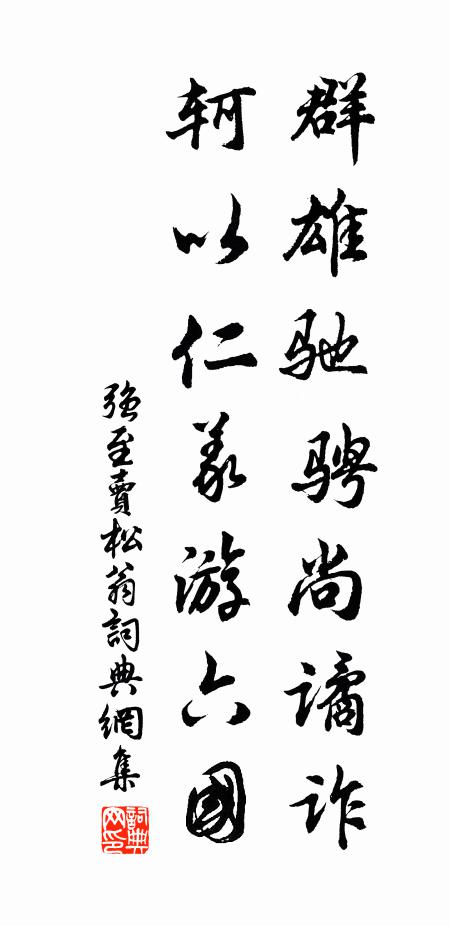 群雄驰骋尚谲诈
轲以仁义游六國
強至賣松翁詞典網集
詞典網印